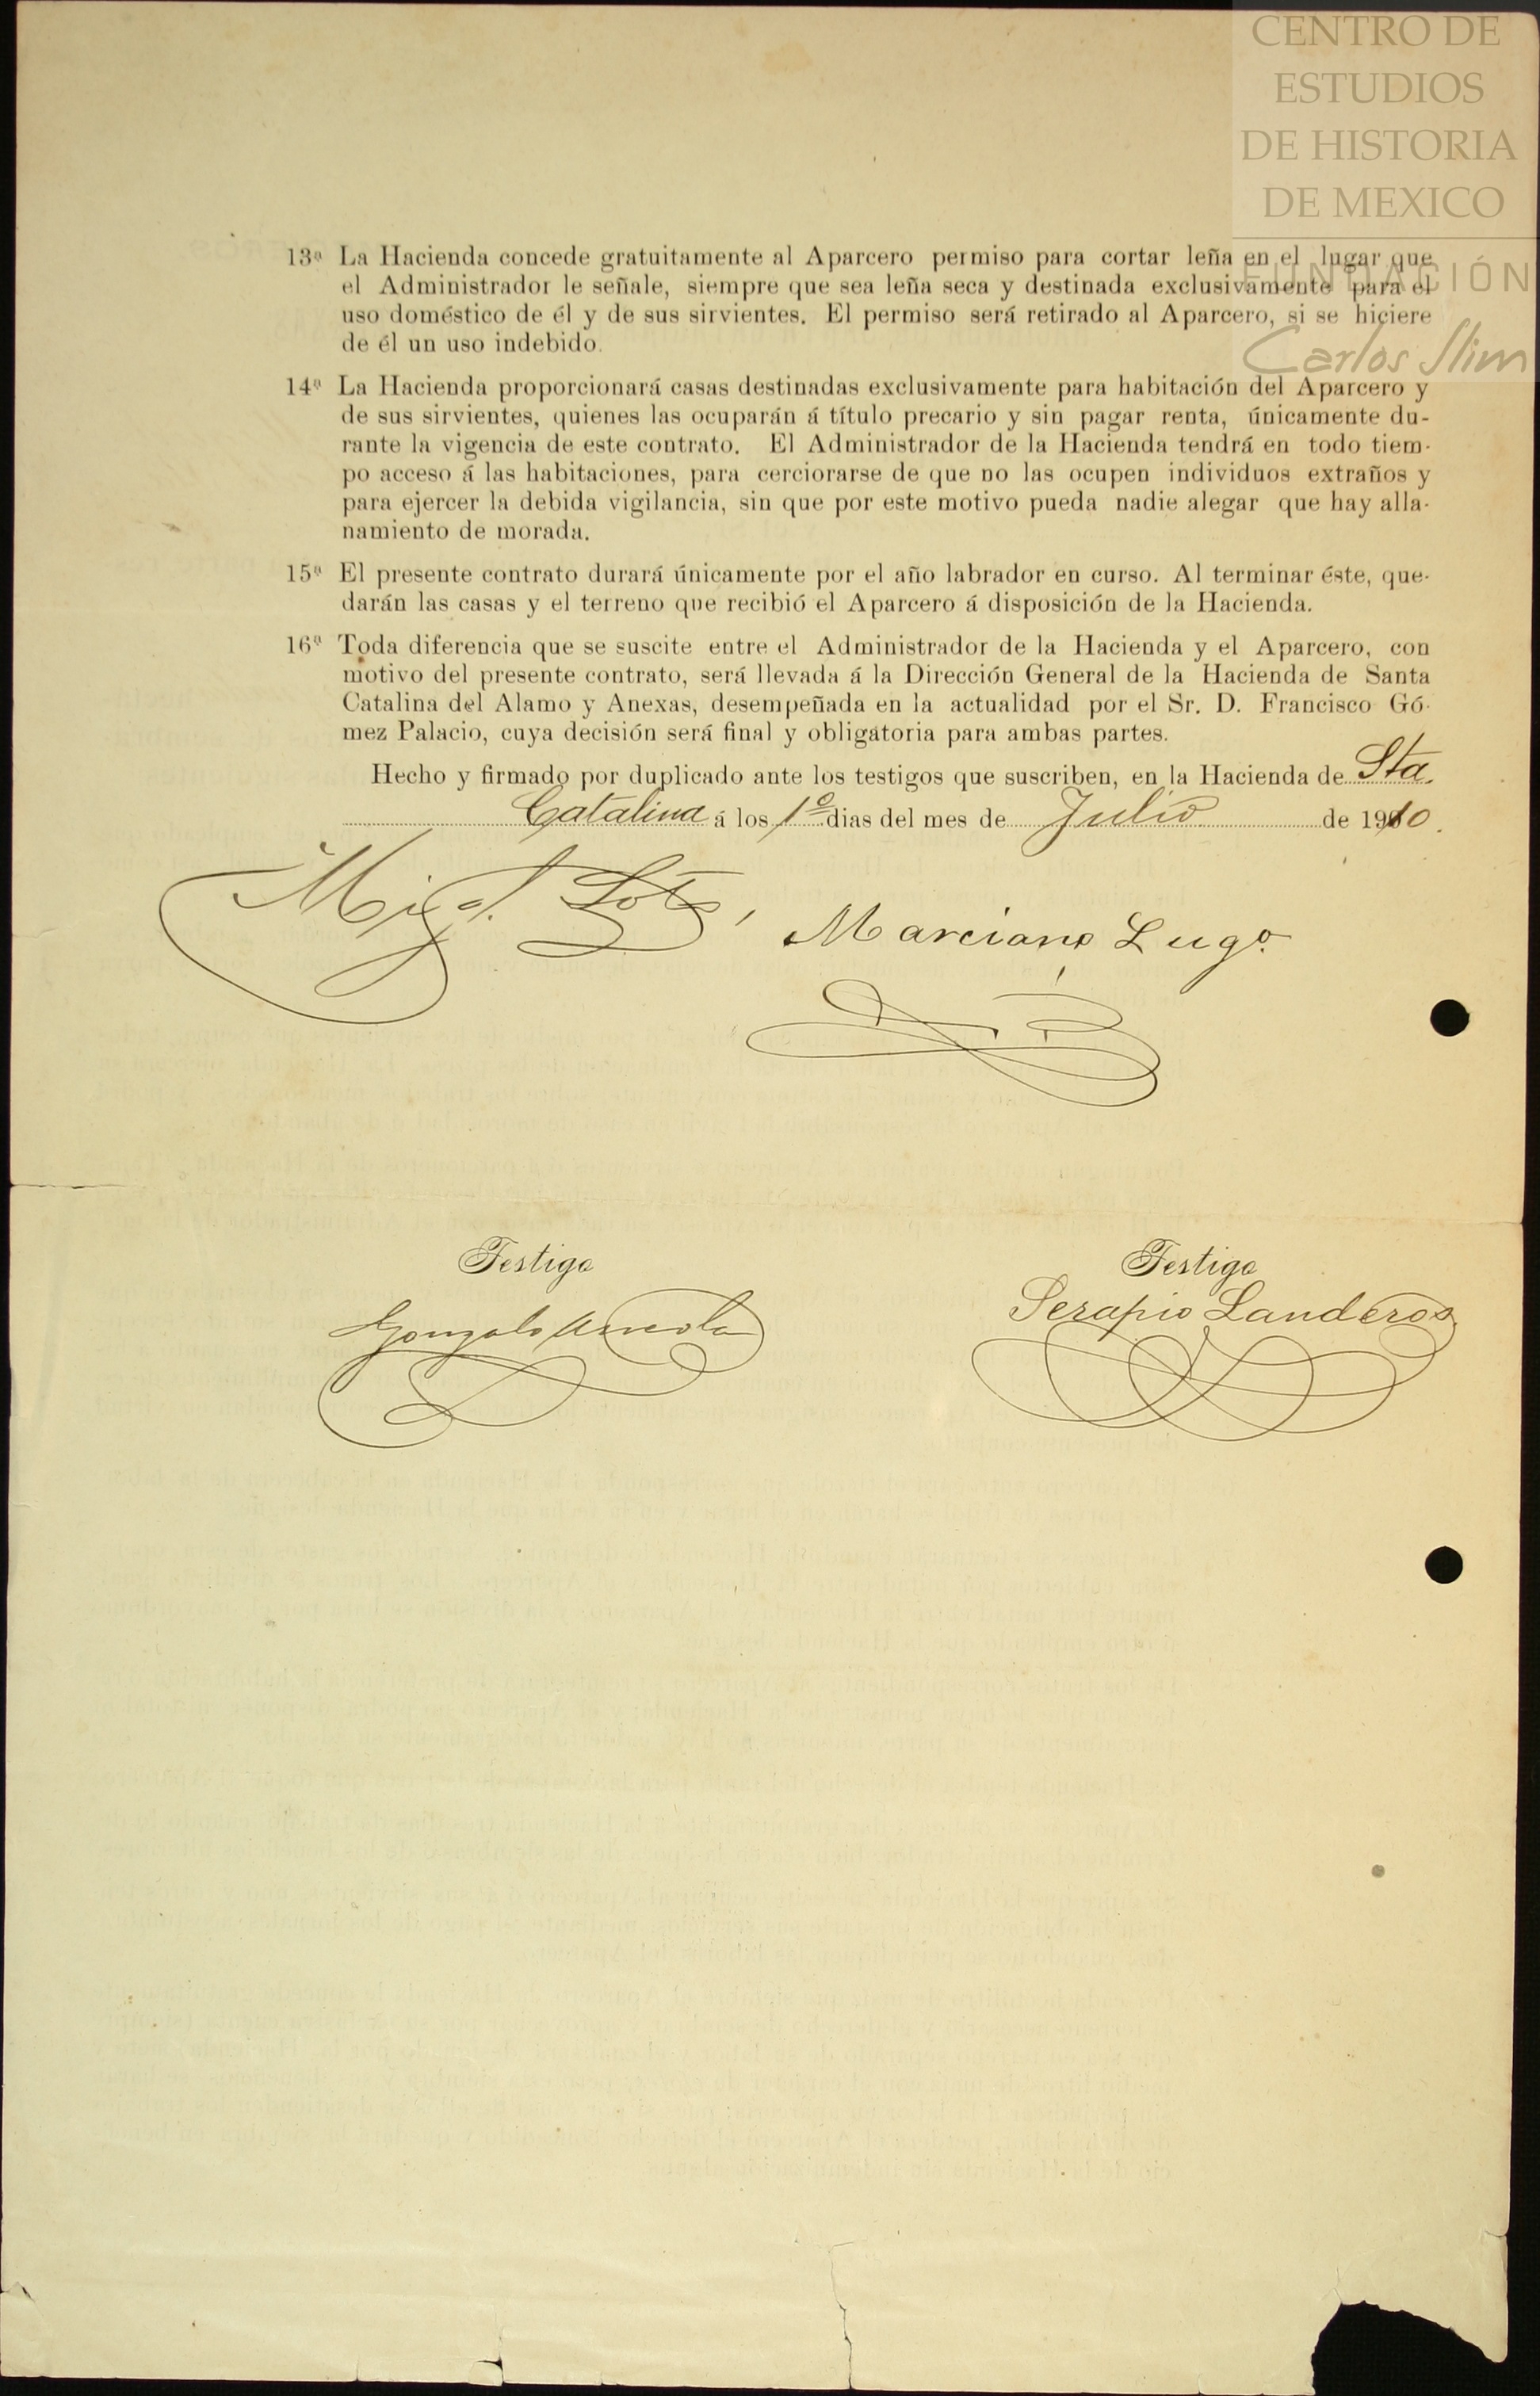 CENTRO DE
ESTUDIOS
DE HISTORIA
DE MEXICO
FUNDACIÓN
Carlos Slim
13ª La Hacienda concede gratuitamente al Aparcero permiso para cortar leña en el lugar que
el Administrador le señale, siempre que sea leña seca y destinada exclusivamente para el
uso doméstico de él y de sus sirvientes. El permiso será retirado al Aparcero, si se hiciere
de él un uso indebido.
14ª La Hacienda proporcionará casas destinadas exclusivamente para habitación del Aparcero y
de sus sirvientes, quienes las ocuparán á título precario y sin pagar renta, únicamente du-
rante la vigencia de este contrato. El Administrador de la Hacienda tendrá en todo tiem-
po acceso á las habitaciones, para cerciorarse de que no las ocupen individuos extraños y
para ejercer la debida vigilancia, sin que por este motivo pueda nadie alegar que hay alla-
namiento de morada.
15ª El presente contrato durará únicamente por el año labrador en curso. Al terminar éste, que-
darán las casas y el terreno que recibió el Aparcero á disposición de la Hacienda.
16ª Toda diferencia que se suscite entre el Administrador de la Hacienda y el Aparcero, con
motivo del presente contrato, será llevada á la Dirección General de la Hacienda de Santa
Catalina del Alamo y Anexas, desempeñada en la actualidad por el Sr. D. Francisco Gó-
mez Palacio, cuya decisión será final y obligatoria para ambas partes.
Hecho y firmado por duplicado ante los testigos que suscriben, en la Hacienda de Sta.
Catalina á los 1º dias del mes de Julio de 1910.
Marciano Lugo.
Testigo Testigo
Gonzalo Serapio Landeros